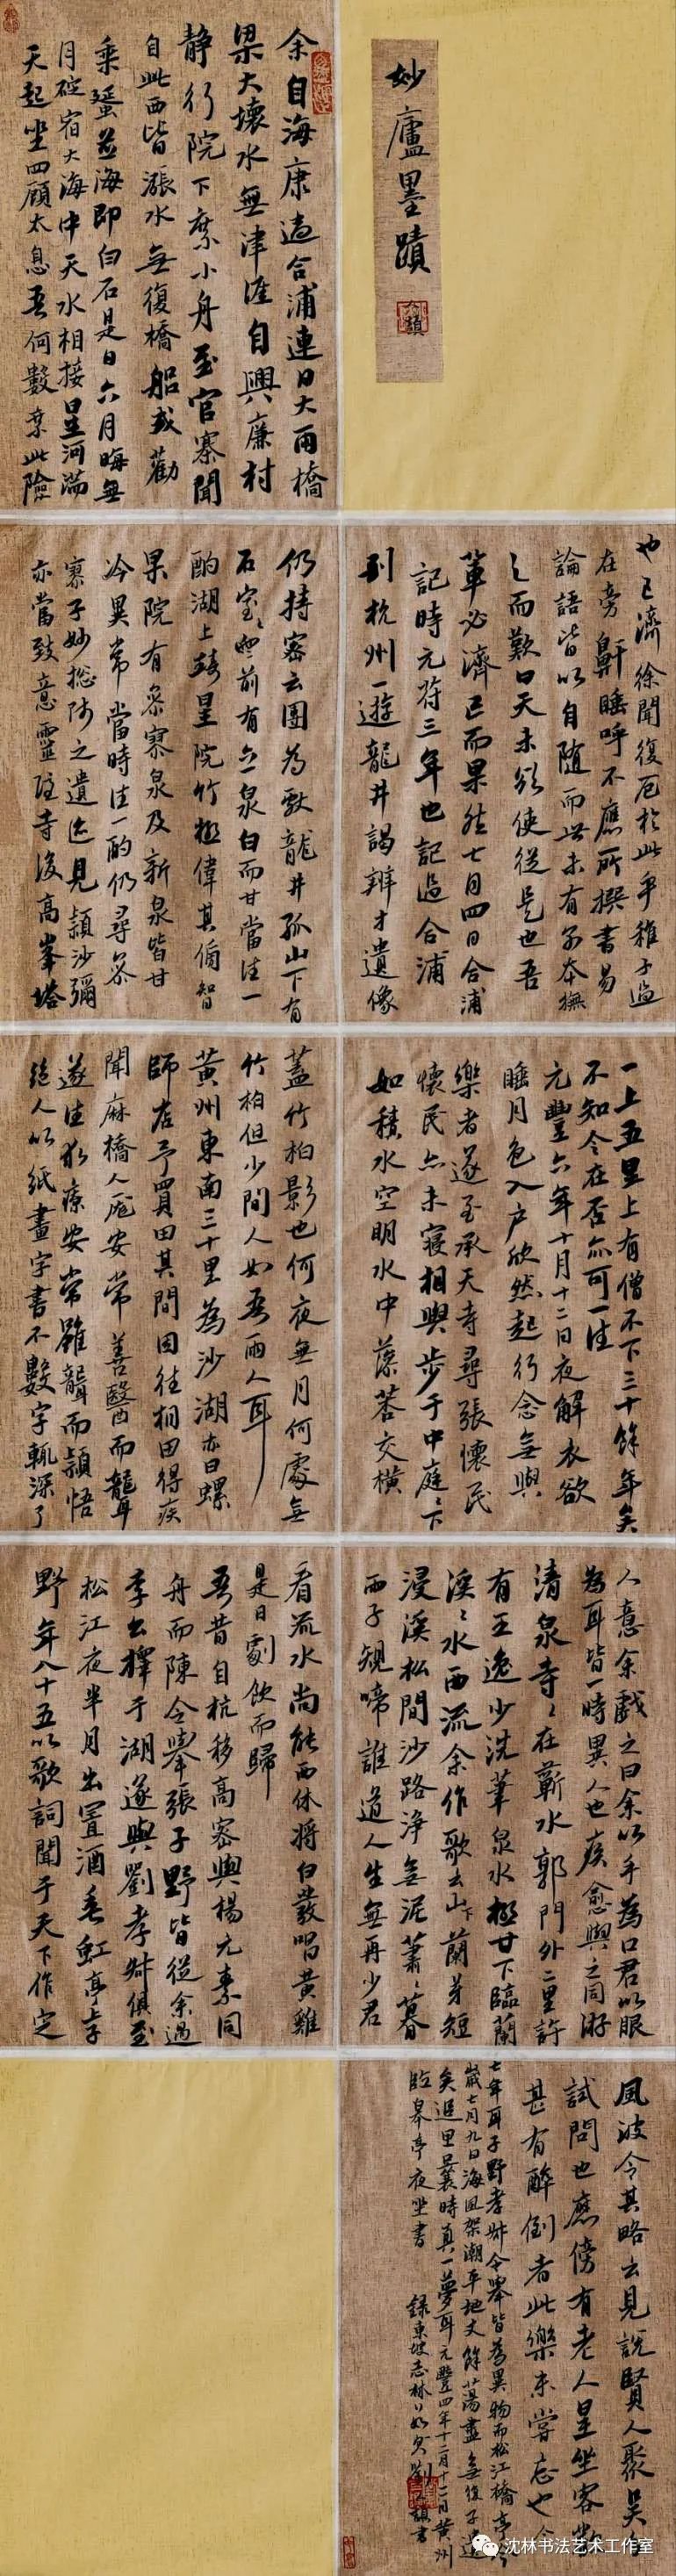 妙廬墨蹟
余自海康適合浦連日大雨橋
梁大壞水無津涯自興廉村
靜行院下乘小舟至官寨聞
自此西皆漲水無復橋船或勸
乘蜑並海即白石是日六月晦無
月碇宿大海中天水相接星河滿
天起坐四顧太息吾何數乘此險
也已濟徐聞復厄於此乎稚子過
在旁鼾睡呼不應所撰書易
論語皆以自隨而世未有別本撫
之而歎曰天未欲使從是也吾
輩必濟已而果然七月四日合浦
記時元符三年也記過合浦
到杭州一遊龍井謁辯才遺像
仍持密云團為獻龍井孤山下有
石室室前有六一泉白而甘當往一
酌湖上壽星院竹極偉其傍智
果院有參寥泉及新泉皆甘
冷異常當時往一酌仍尋參
寥子妙總師之遺迹見穎沙彌
亦當致意靈隱寺後高峯塔
一上五里上有僧不下三十餘年矣
不知今在否亦可一往
元豐六年十月十二日夜解衣欲
睡月色入户欣然起行念無與
樂者遂至承天寺尋張懷民
懷民亦未寢相與步于中庭庭下
如積水空明水中藻荇交橫
蓋竹柏影也何夜無月何處無
竹柏但少閒人如吾兩人耳
黄州東南三十里為沙湖亦曰螺
師店予買田其間因往相田得疾
聞麻橋人龐安常善醫而聾
遂往求療安常雖聾而穎悟
絕人以紙畫字書不數字輒深了
人意余戲之曰余以手為口君以眼
為耳皆一時異人也疾愈與之同游
清泉寺寺在蘄水郭門外二里許
有王逸少洗筆泉水極甘下臨蘭
溪溪水西流余作歌云山下蘭芽短
浸溪松間沙路淨無泥蕭蕭暮
雨子規啼誰道人生無再少君
看流水尚能西休將白髮唱黄雞
是日劇飲而歸
吾昔自杭移高密與楊元素同
舟而陳令舉張子野皆從余過
李公擇于湖遂與劉孝叔俱至
松江夜半月出置酒垂虹亭上子
野年八十五以歌詞聞于天下作定
風波令其略云見說賢人聚吳分
試問也應傍有老人星坐客歡
甚有醉倒者此樂未嘗忘也今
七年耳子野孝叔令舉皆為異物而松江橋亭今
歲七月九日海風架潮平地丈餘蕩盡無復孑遺
矣追思曩時真一夢耳元豐四年十二月十二日黄州
臨皋亭夜坐書
沈林书法艺术工作室